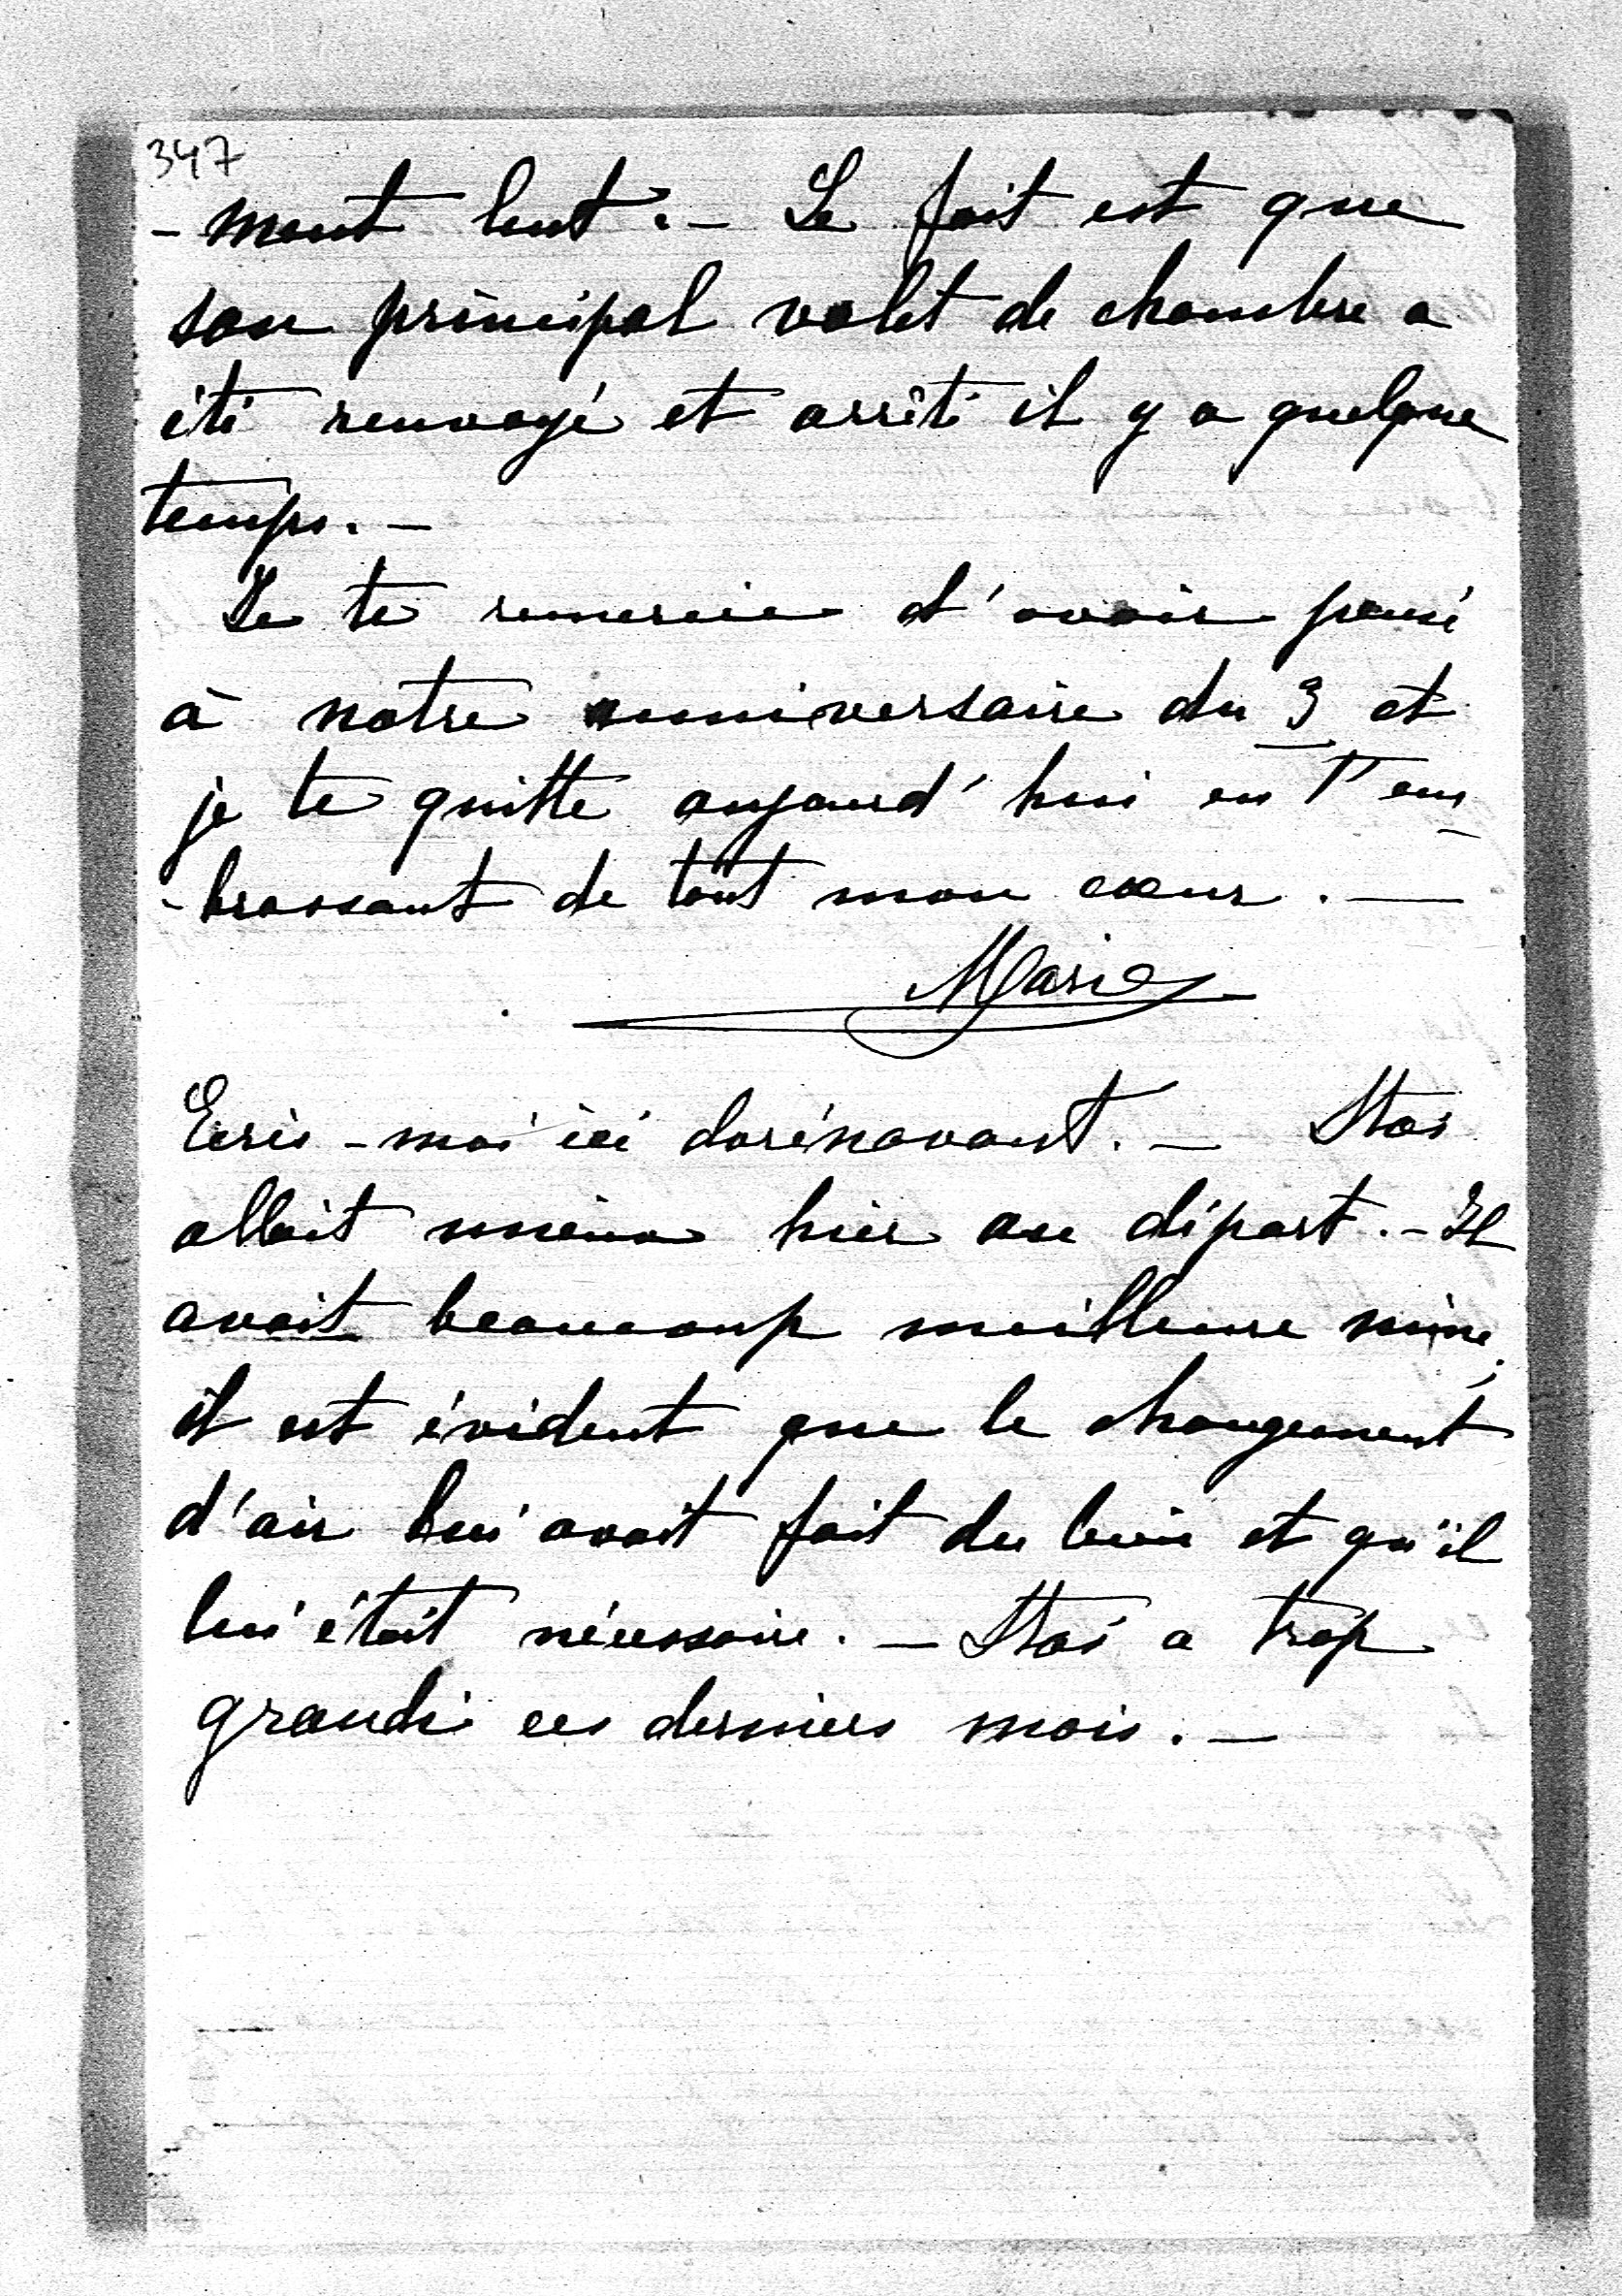 347
- ment lent. - Le fait est que
son principal valet de chambre a
été renvoyé et arrêté il y a quelque
temps. -
Je te remercie d'avoir pensé
à notre anniversaire du 3 et
je te quitte aujourd'hui en t'em
- brassant de tout mon cœur. -
Marie
Ecris-moi ici dorénavant. - Stas
allait mieux hier au départ. - Il
avait beaucoup meilleure mine;
il est évident que le changement
d'air lui avait fait du bien et qu'il
lui était nécessaire. - Stas a trop
grandi ces derniers mois. -